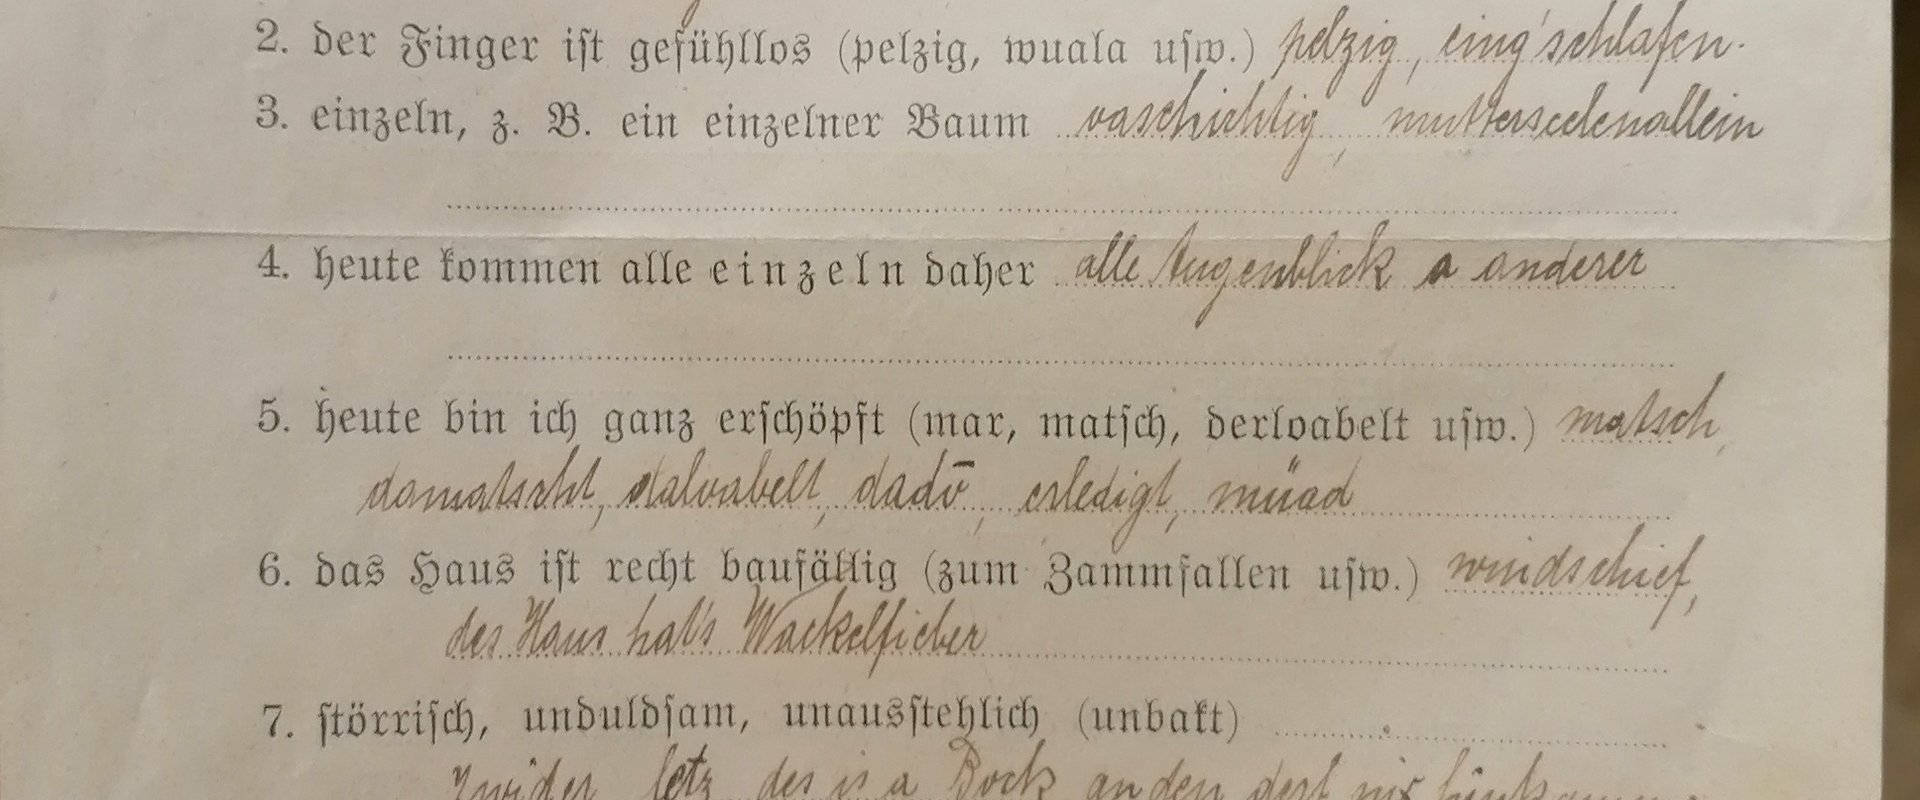 2. der Finger iſt gefühllos (pelzig, wuala uſw.) pelzig, eing'schlafen.
3. einzeln, z. B. ein einzelner Baum vaschichtig, mutterseelenallein
4. heute kommen alle einzeln daher alle Augenblick a anderer
5. heute bin ich ganz erſchöpft (mar, matſch, derloabelt uſw.) matsch,
damatscht, daloabelt, dadō, erledigt, müad
6. das Haus iſt recht baufällig (zum Zammfallen uſw.) windschief,
des Haus hat's Wackelfieber
7. ſtörriſch, unduldſam, unausſtehlich (unbakt)
zwider, letz, des is a Bock an den derf nix